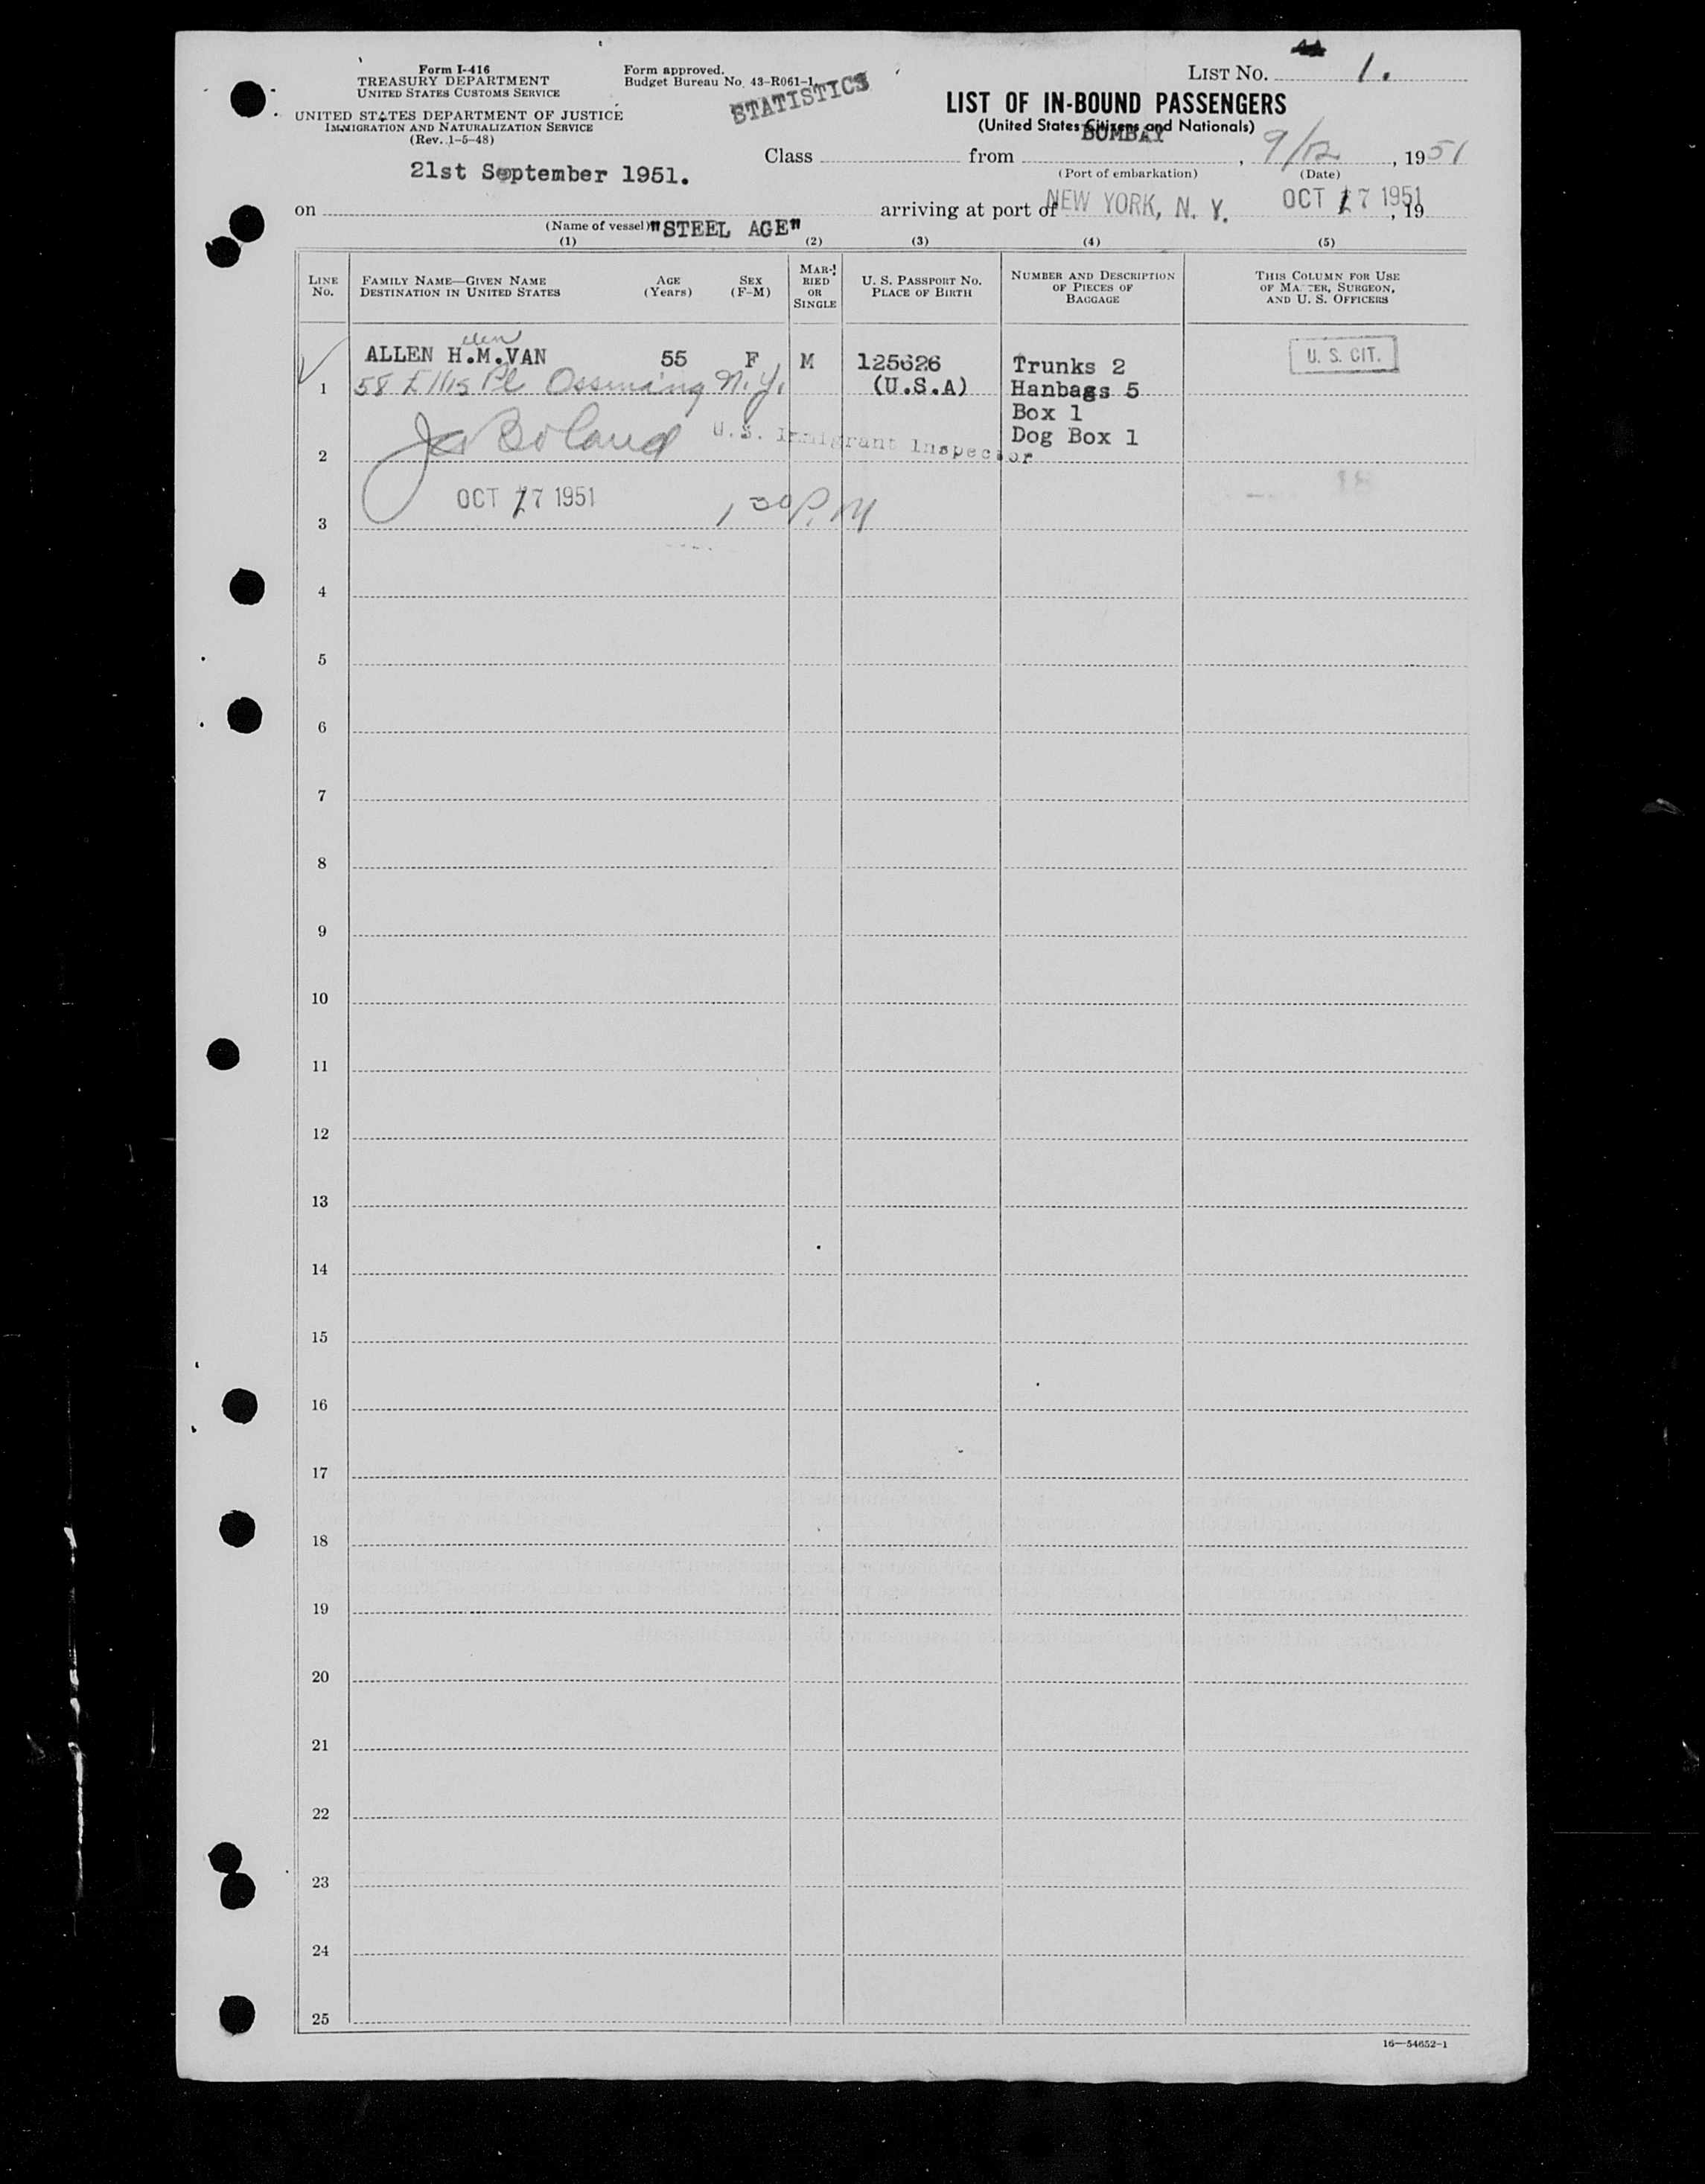 Form I-416
TREASURY DEPARTMENT
UNITED STATES CUSTOMS SERVICE
UNITED STATES DEPARTMENT OF JUSTICE
IMMIGRATION AND NATURALIZATION SERVICE
(Rev. 1-5-48)
Form approved.
Budget Bureau No. 43-R061-1.
STATISTICS
LIST NO. 1.
LIST OF IN-BOUND PASSENGERS
(United States Citizens and Nationals)
21st September 1951.
Class from BOMBAY, 9/12, 1951
(Port of embarkation) (Date)
on arriving at port of NEW YORK, N. Y. OCT 17 1951, 19
(Name of vessel) "STEEL AGE"
(1) (2) (3) (4) (5)
LINE No.
FAMILY NAME—GIVEN NAME
DESTINATION IN UNITED STATES
AGE (Years)
SEX (F-M)
MARRIED OR SINGLE
U. S. PASSPORT NO.
PLACE OF BIRTH
NUMBER AND DESCRIPTION OF PIECES OF BAGGAGE
THIS COLUMN FOR USE OF MASTER, SURGEON, AND U. S. OFFICERS
ellen
ALLEN H.M.VAN 55 F M 125626 Trunks 2 U. S. CIT.
1 58 Ellis Pl Ossining N.Y. (U.S.A) Hanbags 5
Box 1
Boland U.S. Immigrant Inspector Dog Box 1
2
OCT 17 1951 1 30 P.M
3
4
5
6
7
8
9
10
11
12
13
14
15
16
17
18
19
20
21
22
23
24
25
16—54652-1